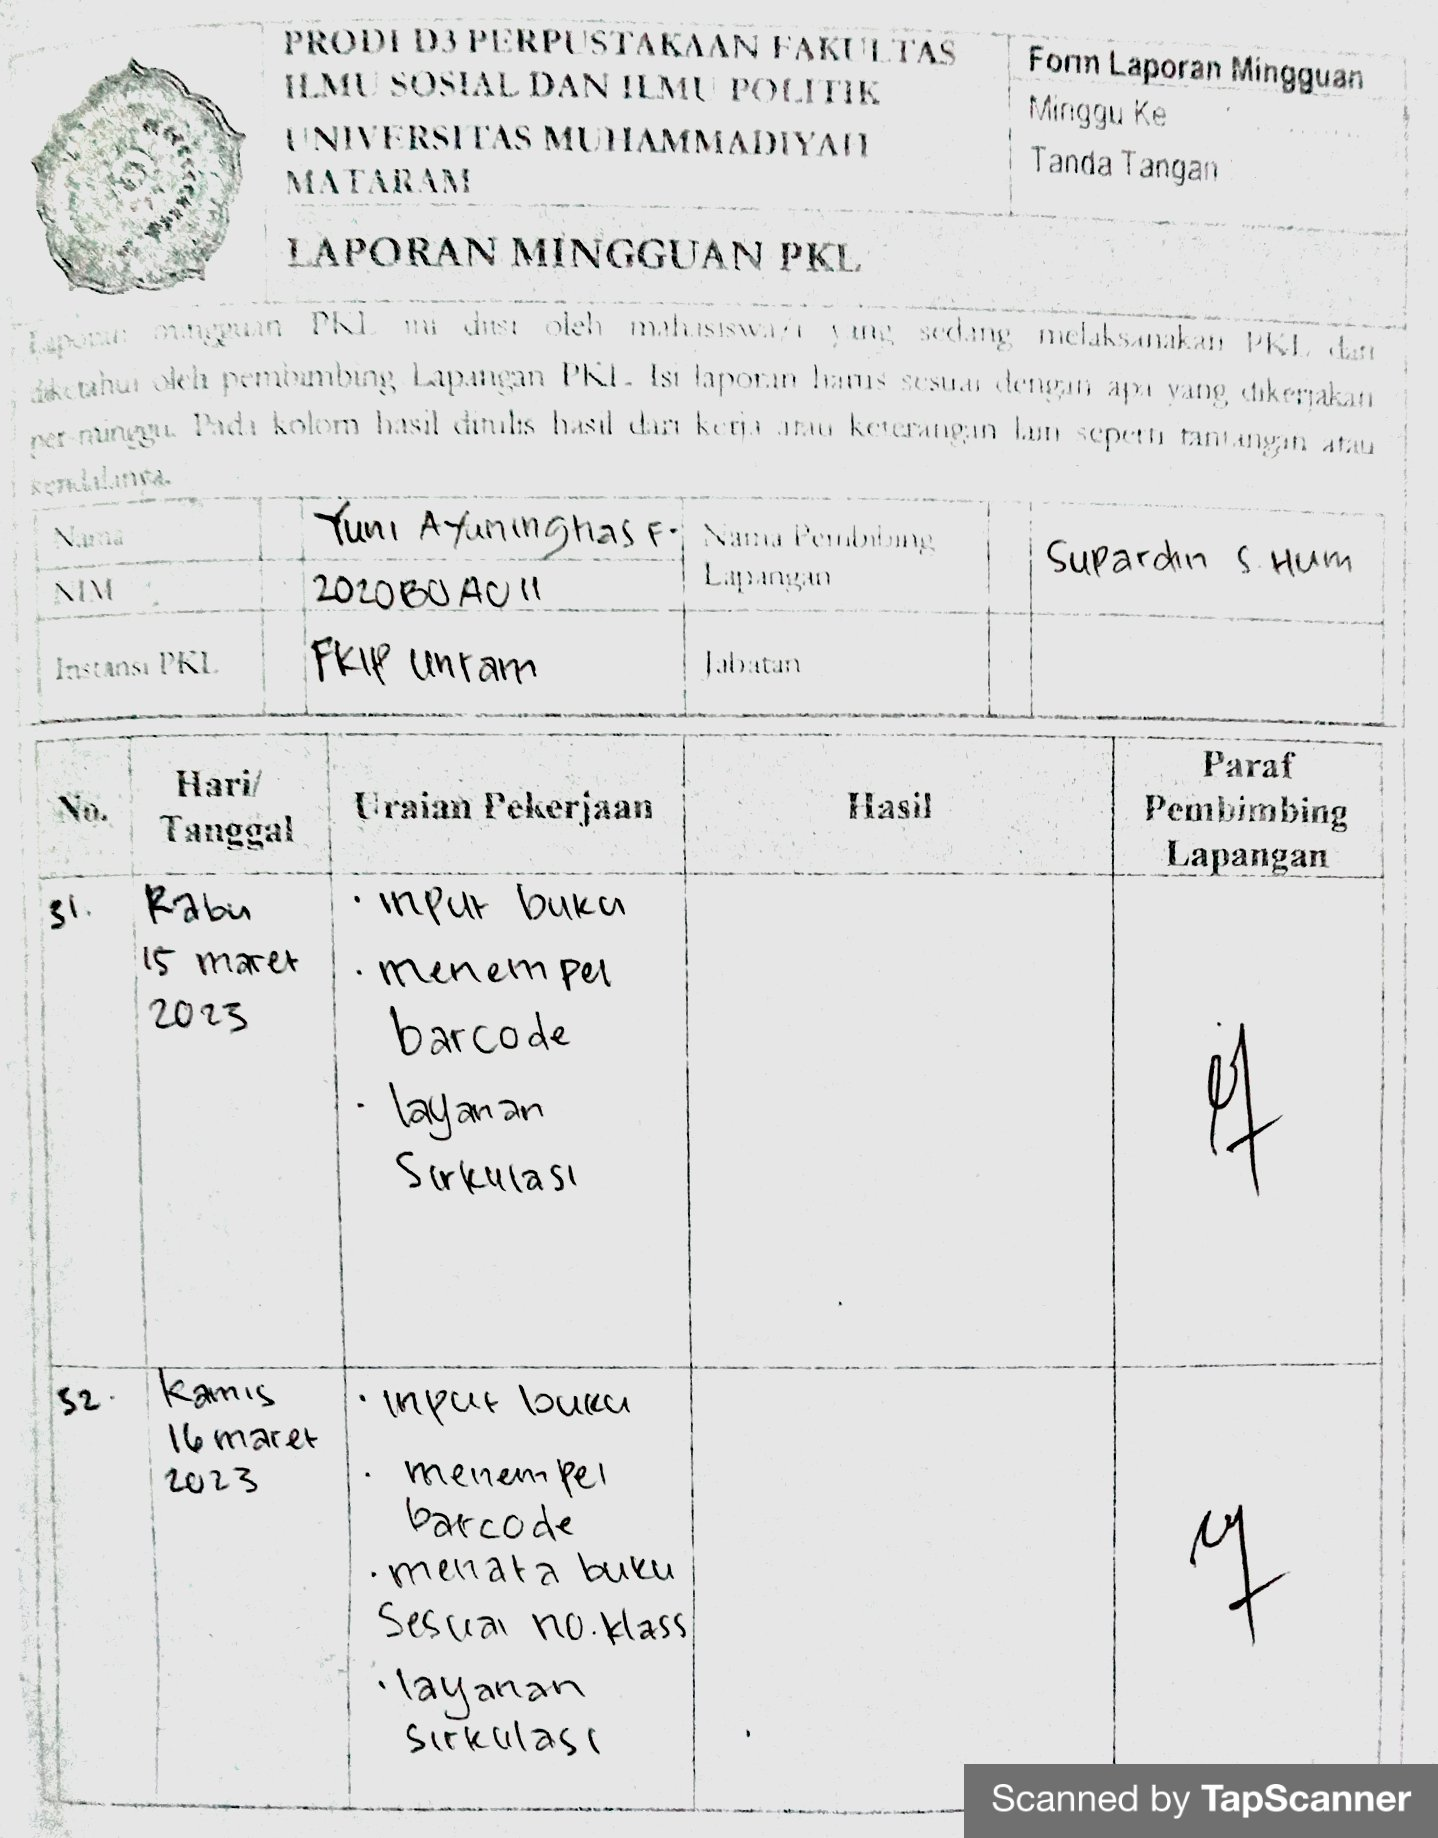 PRODI D3 PERPUSTAKAAN FAKULTAS
ILMU SOSIAL DAN ILMU POLITIK
UNIVERSITAS MUHAMMADIYAH
MATARAM
LAPORAN MINGGUAN PKL
Form Laporan Mingguan
Minggu Ke
Tanda Tangan
Laporan mingguan PKL ini diisi oleh mahasiswa/i yang sedang melaksanakan PKL dan
diketahui oleh pembimbing Lapangan PKL. Isi laporan harus sesuai dengan apa yang dikerjakan
per-minggu. Pada kolom hasil ditulis hasil dari kerja atau keterangan lain seperti tantangan atau
kendalanya.
Nama Yuni Ayuninghas F. Nama Pembibing Lapangan Supardin S. Hum
NIM 2020B0A011
Instansi PKL FKIP Unram Jabatan
No. Hari/ Tanggal Uraian Pekerjaan Hasil Paraf Pembimbing Lapangan
31. Rabu
15 maret
2023
· input buku
· menempel
barcode
· layanan
Sirkulasi
32. Kamis
16 maret
2023
· input buku
· menempel
barcode
· menata buku
Sesuai no. klass
· layanan
sirkulasi
Scanned by TapScanner